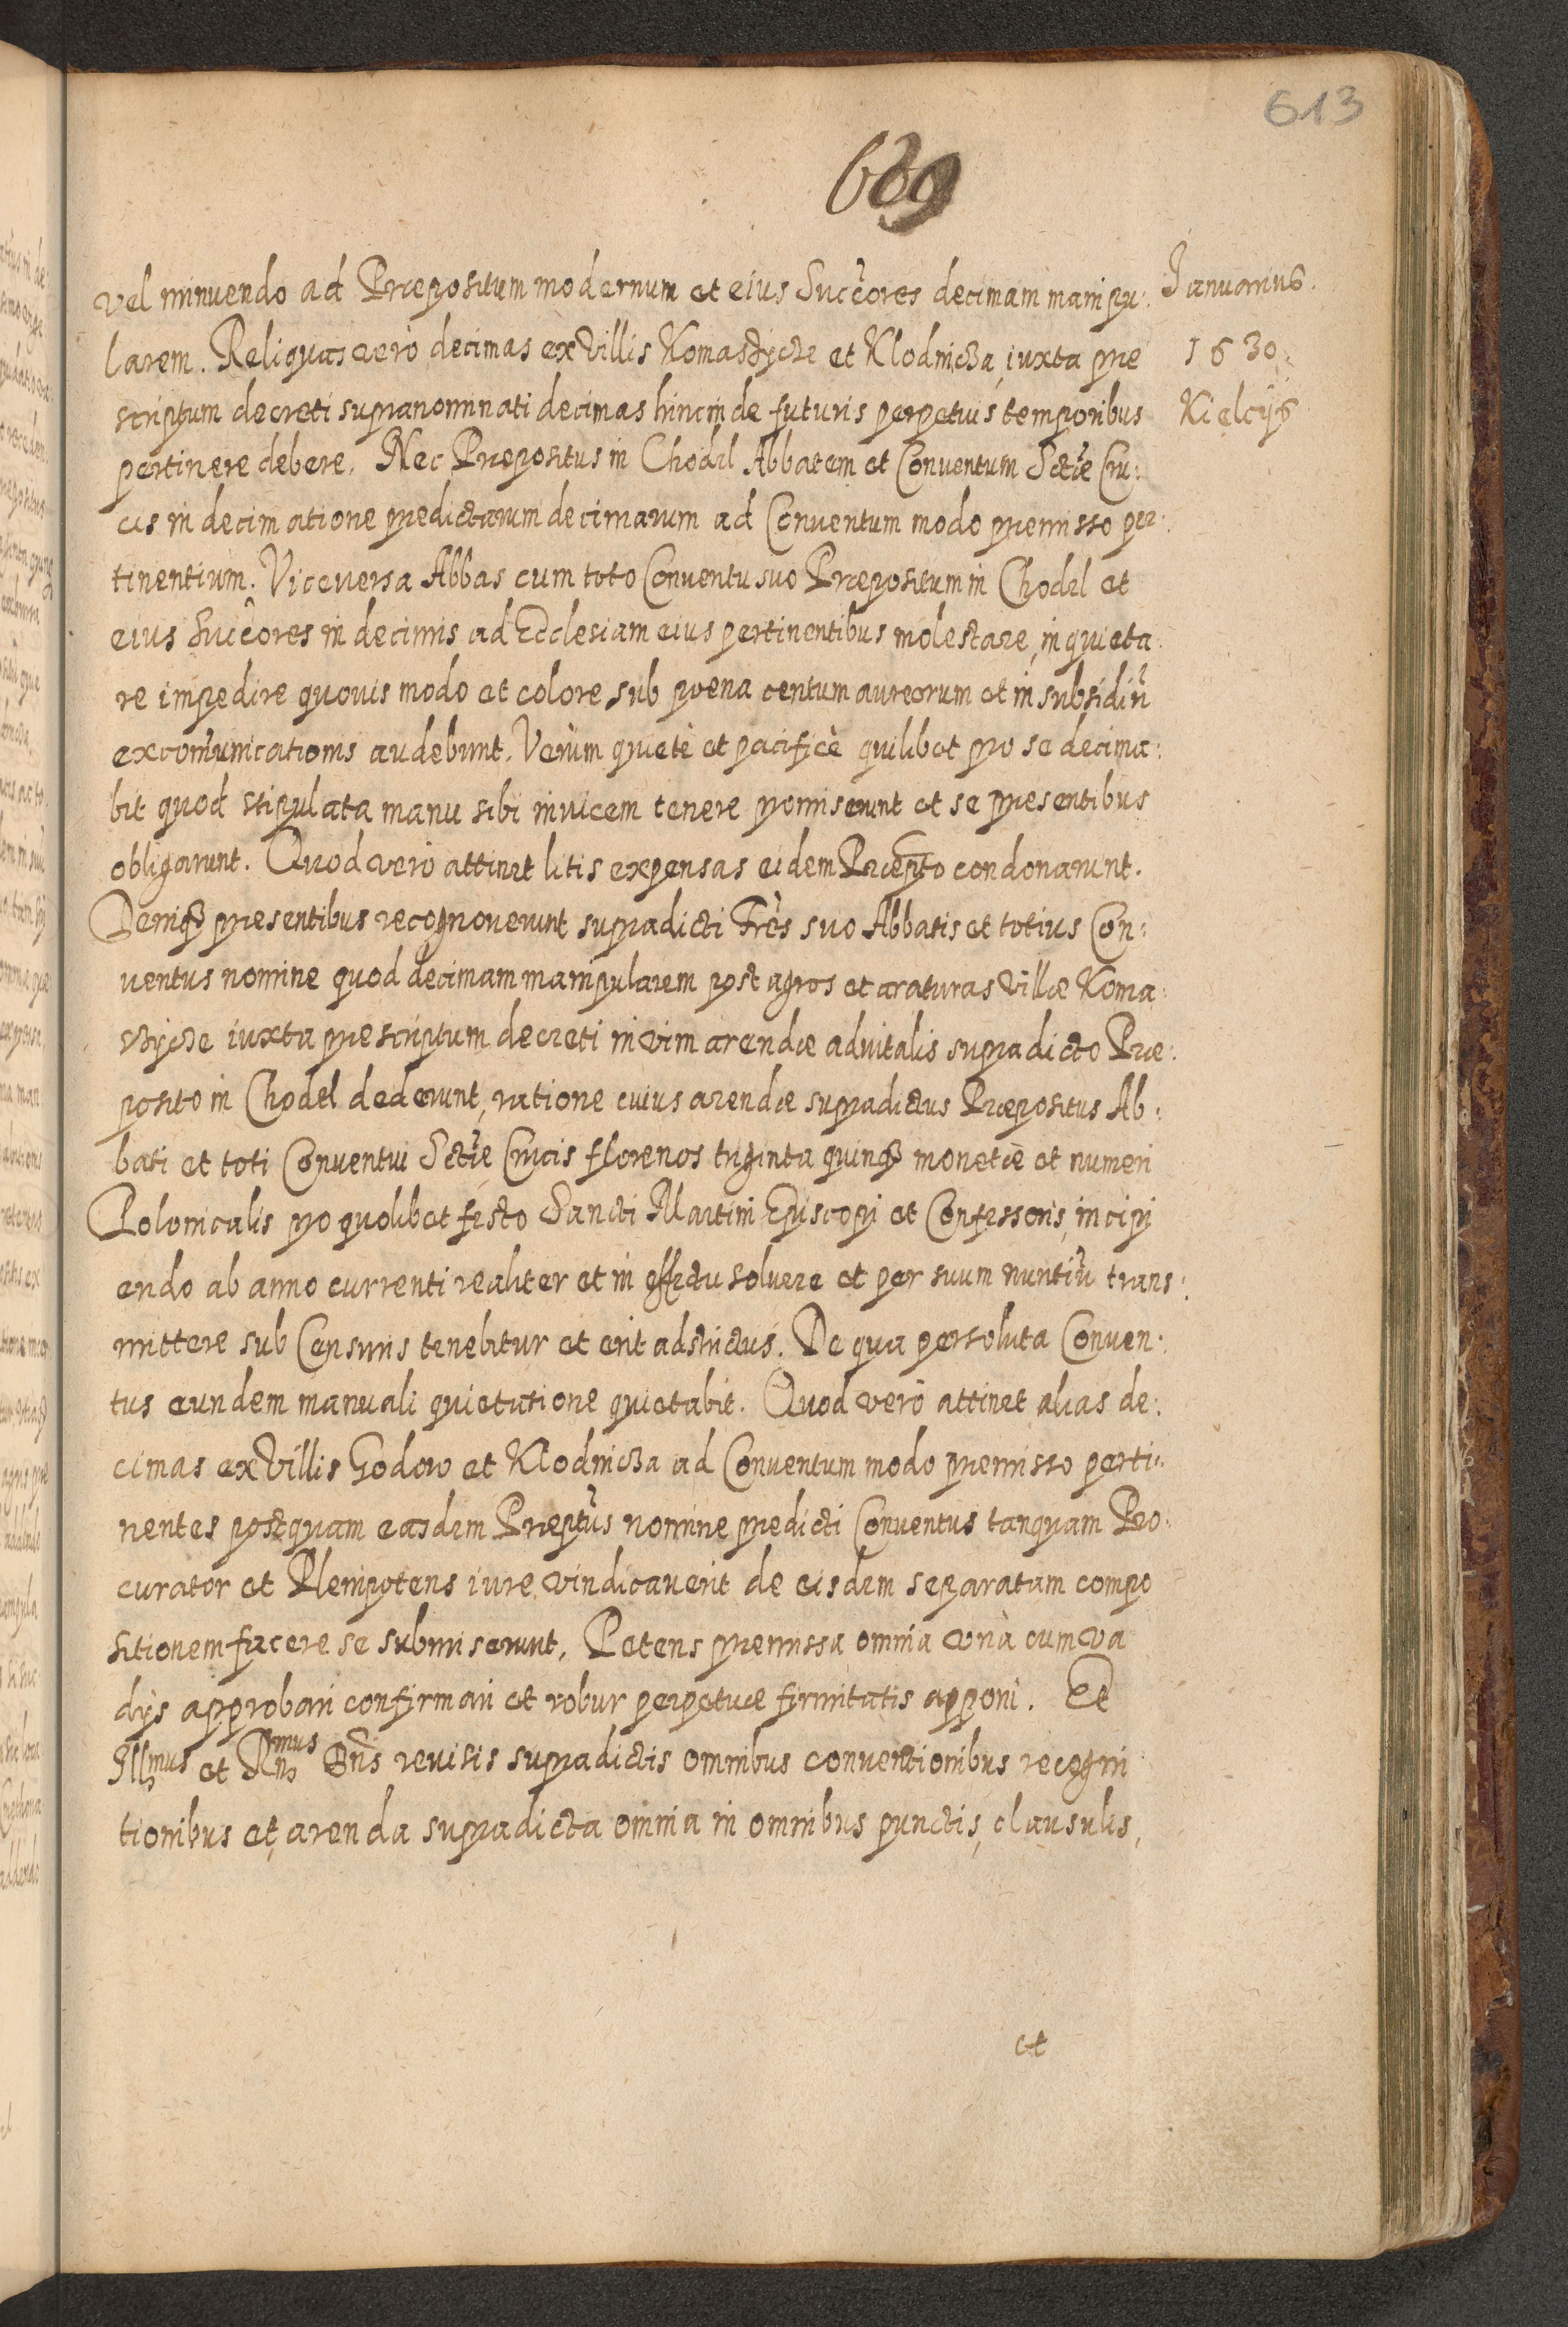 613
689
vel minuendo ad Præpositum modernum et eius Succ̃ores decimam manipu: Januarius.
larem. Reliquas verò decimas ex Villis Komaszÿcze et Klodnicza, iuxta præ 1630.
scriptum decreti supranominati decimas hincinde futuris perpetuis temporibus Kielcÿs
pertinere debere. Nec Præpositus in Chodel Abbatem et Conventum S̃ctæ Cru:
cis in decimatione prædictarum decimarum ad Conventum modo præmisso per:
tinentium. Viceversa Abbas cum toto Conventu suo Præpositum in Chodel et
eius Succ̃ores in decimis ad Ecclesiam eius pertinentibus molestare, inquieta:
re impedire quovis modo et colore sub pœna centum aureorum et in subsidiũ
excom̃unicationis audebunt. Verùm quietè et pacificè quilibet pro se decima:
bit quod stipulata manu sibi invicem tenere promiserunt et se præsentibus
obligarunt. Quod verò attinet litis expensas eidem Præpto condonarunt.
Deniq̃ præsentibus recognoverunt supradicti Frẽs suo Abbatis et totius Con:
ventus nomine quod decimam manipularem post agros et araturas Villæ Koma:
szÿcze iuxta præscriptum decreti in vim arendæ advitalis supradicto Præ:
posito in Chodel dederunt, ratione cuius arendæ supradictus Præpositus Ab:
bati et toti Conventui S̃ctæ Crucis florenos triginta quinq̃ monetæ et numeri
Polonicalis pro quolibet festo Sancti Martini Episcopi et Confessoris, incipi
endo ab anno currenti realiter et in effectu solvere et per suum nuntiũ trans:
mittere sub Censuris tenebitur et erit adstrictus. De qua persoluta Conven:
tus eundem manuali quietatione quietabit. Quod verò attinet alias de:
cimas ex Villis Godow et Klodnicza ad Conventum modo præmisso perti:
nentes postquam easdem Præptus nomine prædicti Conventus tanquam Pro:
curator et Plenipotens iure vindicaverit de eisdem separatam compo
sitionem facere se submiserunt. Petens præmissa omnia unà cum va
dÿs approbari confirmari et robur perpetuæ firmitatis apponi. Et
Illmus et Rndmus Dñs revisis supradictis omnibus conventionibus recogni
tionibus et arenda supradicta omnia in omnibus punctis, clausulis,
et